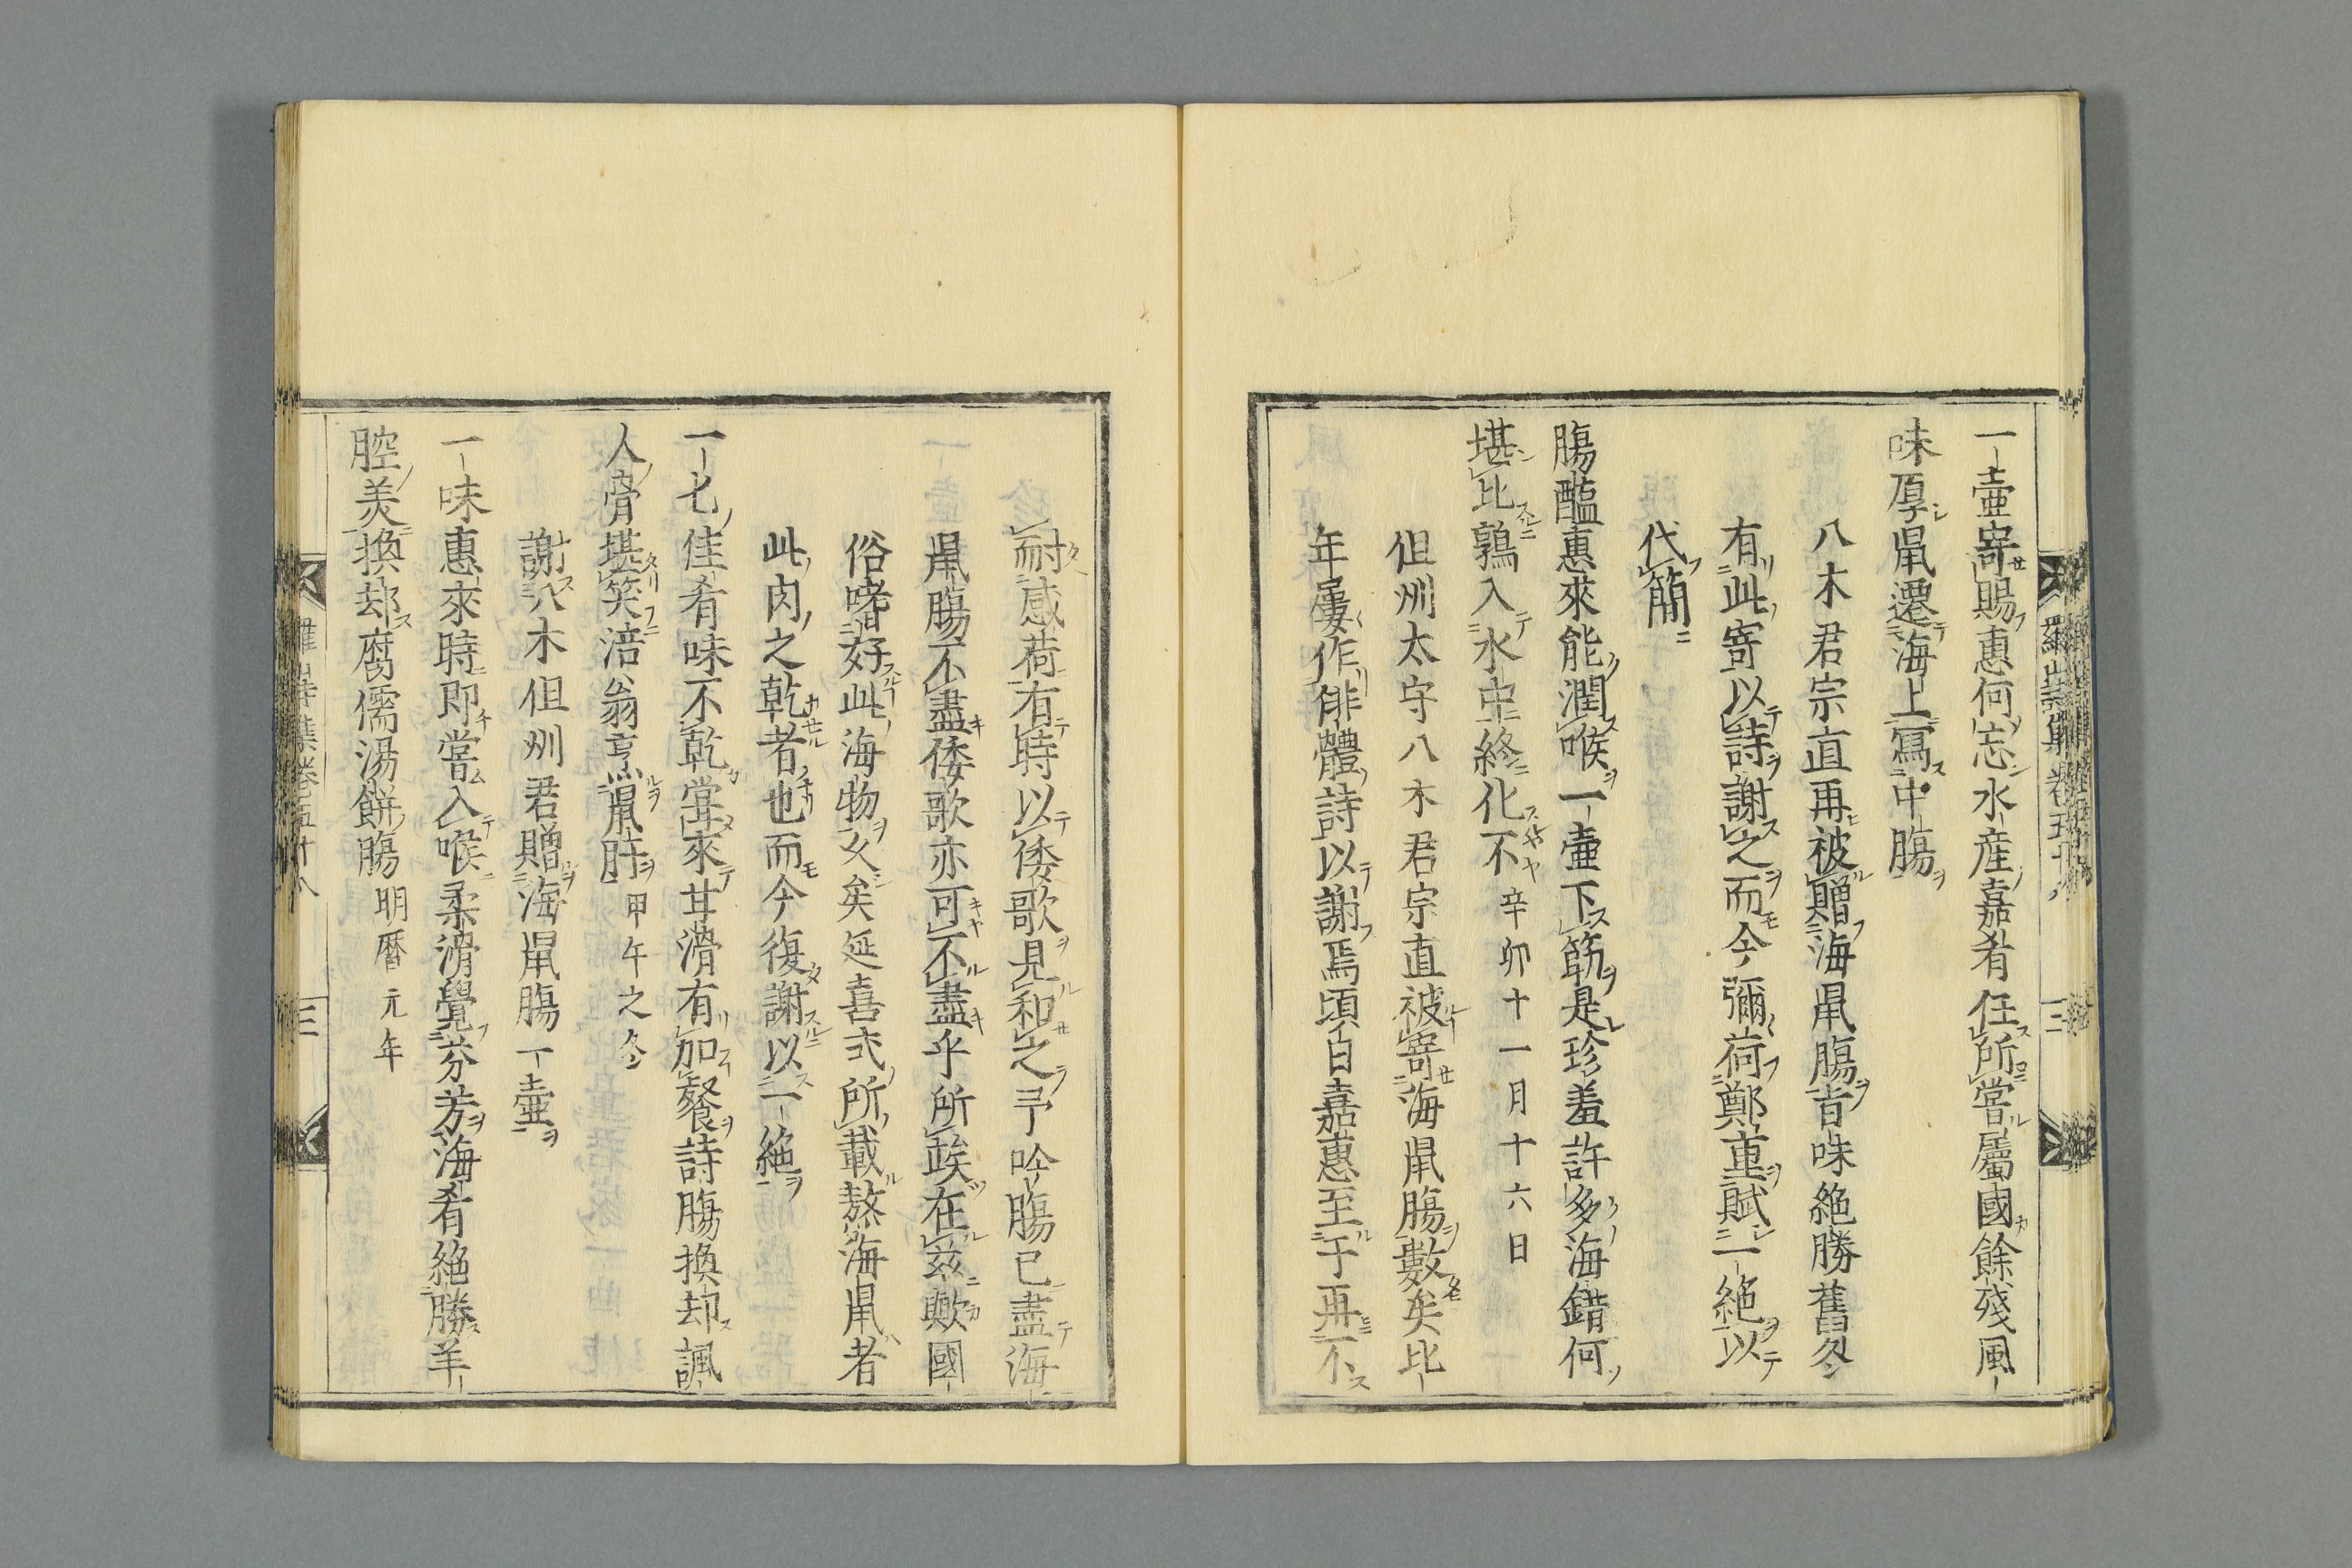 一壷寄賜惠何忘水産嘉肴任所嘗屬國餘殘風
味厚鼠遷海上寫中腸
八木君宗直再被贈海鼠腸旨味絶勝舊冬
有此寄以詩謝之而今彌荷鄭重賦一絶以
代簡
腸醢惠來能潤喉一壷下筯是珍羞許多海錯何
堪比鶉入水中終化不 辛卯十一月十六日
但州太守八木君宗直被寄海鼠腸數矣比
年屢作俳體詩以謝焉頃日嘉惠至于再不
耐感荷有時以倭歌見和之予吟腸已盡海
鼠腸不盡倭歌亦可不盡乎所竢在茲歟國
俗嗜好此海物久矣延喜式所載熬海鼠者
此肉之乾者也而今復謝以一絶
一七佳肴味不乾嘗來甘滑有加餐詩腸換却諷
人骨堪笑涪翁烹鼠肝 甲午之冬
謝八木但州君贈海鼠腸一壷
一味惠來時即嘗入喉柔滑覺芬芳海肴絶勝羊
腔美換却腐儒湯餅腸 明曆元年
羅山詩集卷五十八
三